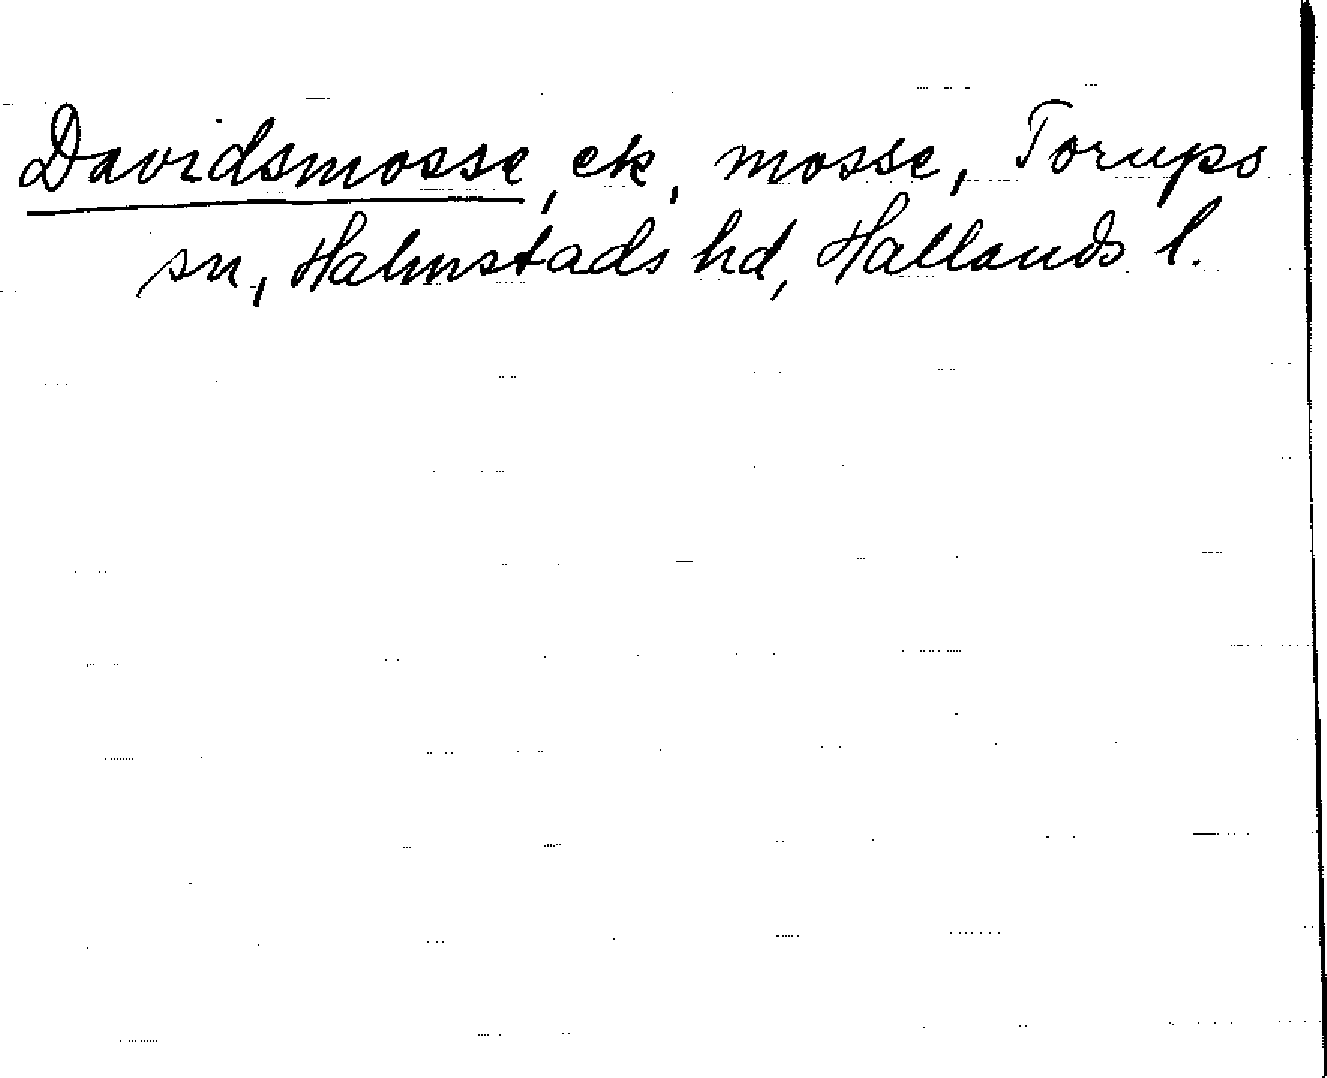 Davidsmosse, ek, mosse, Torups
sn, Halmstads hd, Hallands l.